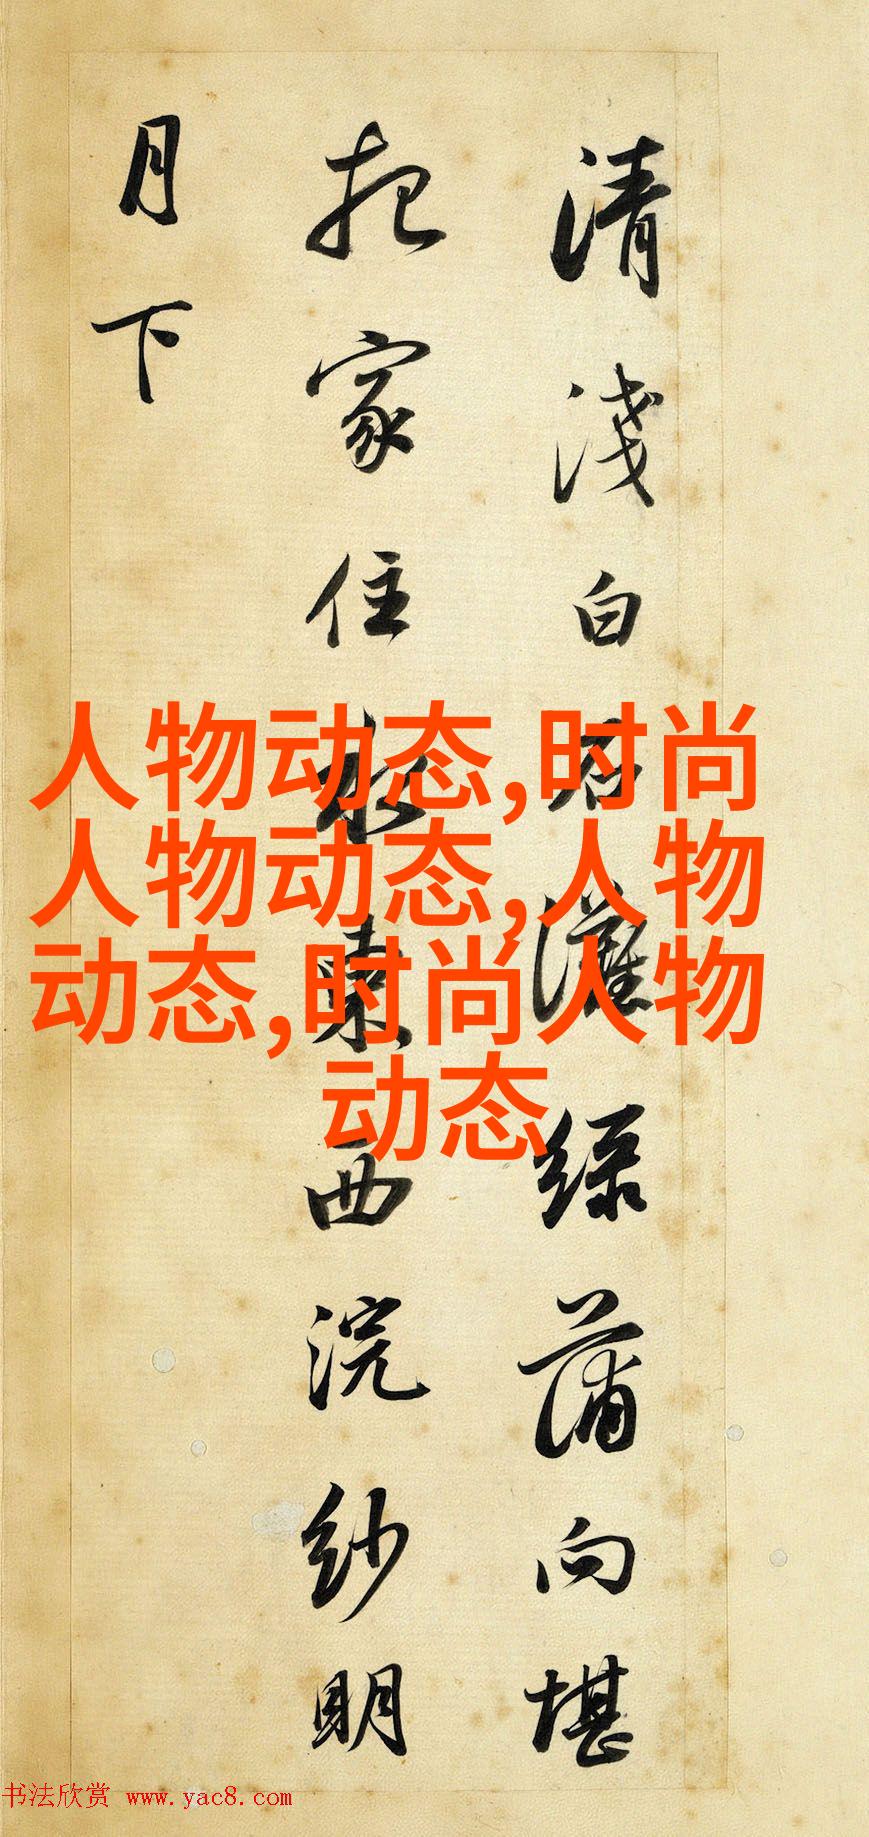 清淺白石灘綠蒲向堪
把家住水東西浣紗明
月下
人物动态,时尚
人物动态,人物
动态,时尚人物
动态
书法欣赏 www.yac8.com